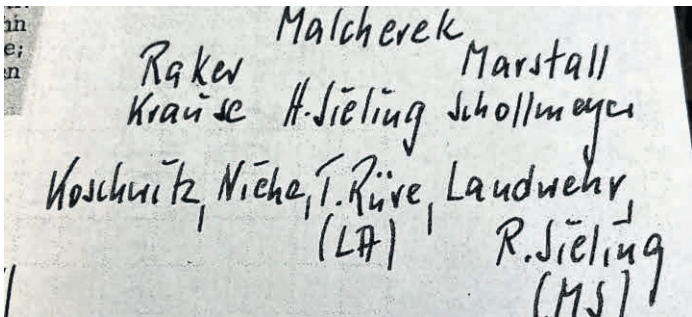 Malcherek
Raker Marstall
Krause H. Sieling Schollmeyer
Koschnitz, Niehe, T. Rüre, Landwehr,
(LA) R. Sieling
(MS)